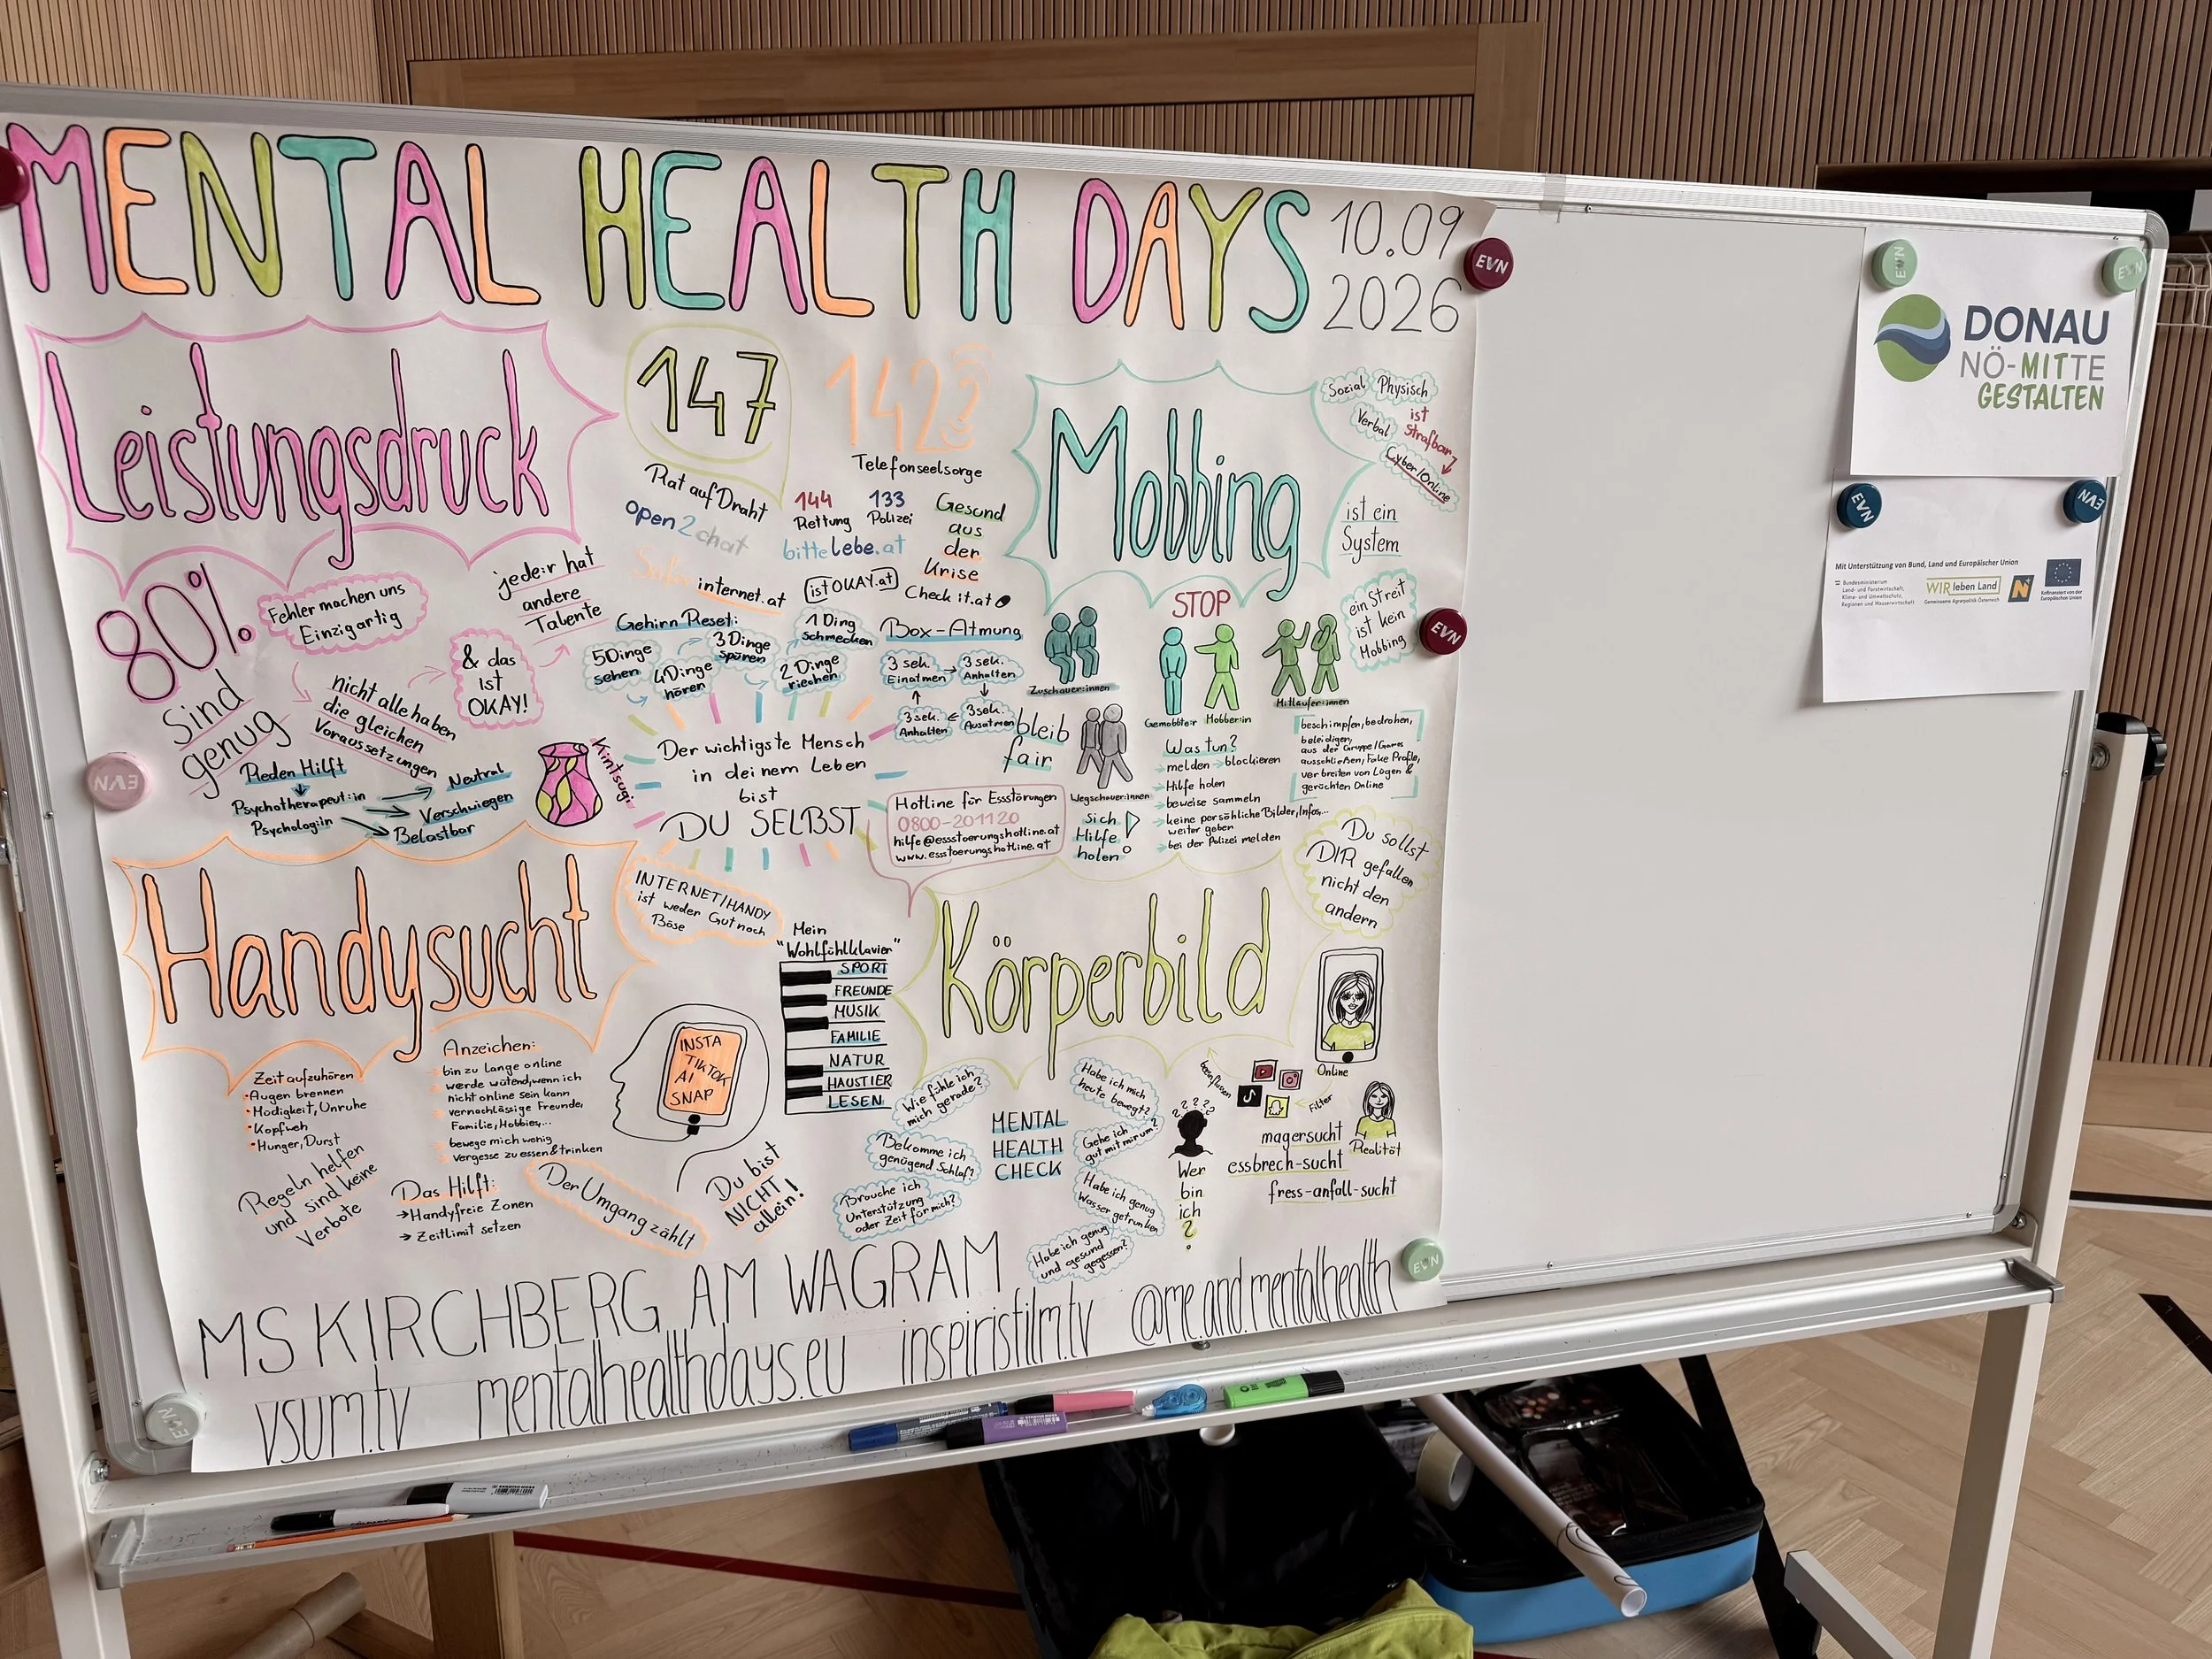 MENTAL HEALTH DAYS
10.09
2026
Leistungsdruck
80%
sind
genug
Fehler machen uns
Einzigartig
nicht alle haben
die gleichen
Voraussetzungen
& das
ist
OKAY!
jede:r hat
andere
Talente
Reden Hilft
Psychotherapeut:in
Psycholog:in
Neutral
Verschwiegen
Belastbar
Kintsugi
147
Rat auf Draht
142
Telefonseelsorge
144
Rettung
133
Polizei
open2chat
bittelebe.at
Gesund
aus
der
Krise
Saferinternet.at
istOKAY.at
Check it.at
Gehirn Reset:
5 Dinge
sehen
4 Dinge
hören
3 Dinge
spüren
2 Dinge
riechen
1 Ding
schmecken
Box-Atmung
3 sek.
Einatmen
3 sek.
Anhalten
3 sek.
Ausatmen
3 sek.
Anhalten
Der wichtigste Mensch
in deinem Leben
bist
DU SELBST
Mobbing
Sozial
Physisch
Verbal
ist
strafbar
Cyber/Online
ist ein
System
ein Streit
ist kein
Mobbing
STOP
Zuschauer:innen
Gemobbte:r
Mobber:in
Mitläufer:innen
bleib
fair
Wegschauer:innen
sich
Hilfe
holen!
Was tun?
melden → blockieren
Hilfe holen
beweise sammeln
keine persöhliche Bilder, Infos...
weiter geben
bei der Polizei melden
beschimpfen, bedrohen,
beleidigen,
aus der Gruppe/Games
ausschließen, Fake Profile,
verbreiten von Lügen &
gerüchten Online
Hotline für Essstörungen
0800-201120
hilfe@essstoerungshotline.at
www.essstoerungshotline.at
Handysucht
INTERNET/HANDY
ist weder Gut noch
Böse
Zeit aufzuhören
•Augen brennen
•Müdigkeit, Unruhe
•Kopfweh
•Hunger, Durst
Anzeichen:
bin zu lange online
werde wütend, wenn ich
nicht online sein kann
vernachlässige Freunde,
Familie, Hobbies,...
bewege mich wenig
vergesse zu essen & trinken
Regeln helfen
und sind keine
Verbote
Das Hilft:
→ Handyfreie Zonen
→ Zeitlimit setzen
Der Umgang zählt
INSTA
TIKTOK
AI
SNAP
Du bist
NICHT
allein!
Mein
"Wohlfühlklavier"
SPORT
FREUNDE
MUSIK
FAMILIE
NATUR
HAUSTIER
LESEN
Körperbild
Du sollst
DIR gefallen
nicht den
andern
Online
beeinflussen
Filter
Realität
magersucht
essbrech-sucht
fress-anfall-sucht
? ? ? ?
Wer
bin
ich
?
MENTAL
HEALTH
CHECK
Wie fühle ich
mich gerade?
Bekomme ich
genügend Schlaf?
Brauche ich
Unterstützung
oder Zeit für mich?
Habe ich mich
heute bewegt?
Gehe ich
gut mit mir um?
Habe ich genug
Wasser getrunken
Habe ich genug
und gesund
gegessen?
MS KIRCHBERG AM WAGRAM
vsum.tv mentalhealthdays.eu inspirisfilm.tv @me.and.mentalhealth
EVN
EVN
EVN
EVN
EVN
EVN
EVN
EVN
EVN
DONAU
NÖ-MITTE
GESTALTEN
Mit Unterstützung von Bund, Land und Europäischer Union
Bundesministerium
Land- und Forstwirtschaft,
Klima- und Umweltschutz,
Regionen und Wasserwirtschaft
WIR leben Land
Gemeinsame Agrarpolitik Österreich
N
Kofinanziert von der
Europäischen Union